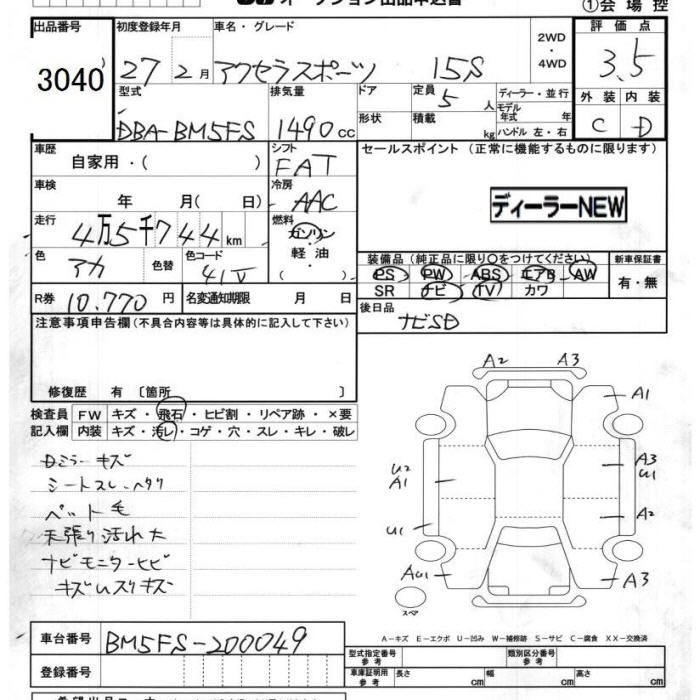 オークション出品申込書 ①会場控
出品番号 初度登録年月 車名・グレード 2WD 評価点
3040 27 2月 アクセラスポーツ 15S ・4WD 3.5
型式 排気量 ドア 定員 ディーラー・並行 外装 内装
DBA-BM5FS 1490cc 5人 モデル年式 年 C D
形状 積載 kg ハンドル 左・右
車歴 シフト セールスポイント(正常に機能するものに限ります)
自家用・( ) FAT
車検 冷房
年 月( 日) AAC ディーラーNEW
走行 燃料
4万5千744km ガソリン
色 色替 色コード 軽油 装備品(純正品に限り○をつけてください) 新車保証書
アカ 41V ・ PS PW ABS エアB AW 有・無
R券 10.770円 名変通知期限 月 日 SR ナビ TV カワ
注意事項申告欄(不具合内容等は具体的に記入して下さい) 後日品
ナビSD
修復歴 有〔箇所 〕
検査員 FW キズ・飛石・ヒビ割・リペア跡・×要
記入欄 内装 キズ・汚レ・コゲ・穴・スレ・キレ・破レ
Dミラーキズ
シートスレ、ヘタリ
ペット毛
天張り汚れ大
ナビモニターヒビ
キズ
A2 A3
A1
U2 A3
A1 U1
A2
U1
AU1 A3
スペア
A-キズ E-エクボ U-凹み W-補修跡 S-サビ C-腐食 XX-交換済
車台番号 BM5FS-200049 型式指定番号 参考 類別区分番号 参考
登録番号 車庫証明用 参考 長さ cm 幅 cm 高さ cm